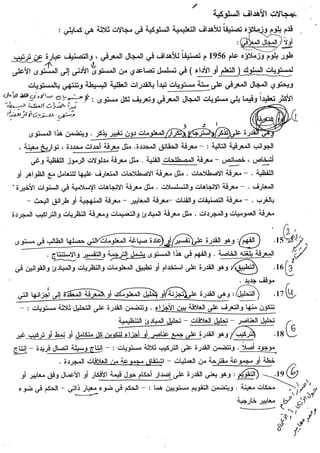 مجالات الأهداف السلوكية
قدم بلوم وزملاؤه تصنيفاً للأهداف التعليمية السلوكية في مجالات ثلاثة هي كمايلي :
أولاً : المجال المعرفي :
طور بلوم وزملاؤه عام 1956 م تصنيفاً للأهداف في المجال المعرفي . والتصنيف عبارة عن ترتيب
لمستويات السلوك ( التعلم أو الأداء ) في تسلسل تصاعدي من المستوى الأدنى إلى المستوى الأعلى
ويحتوي المجال المعرفي على ستة مستويات تبدأ بالقدرات العقلية البسيطة وتنتهي بالمستويات
الأكثر تعقيداً وفيما يلي مستويات المجال المعرفي وتعريف لكل مستوى :
المعرفة :
وهي القدرة على تذكر واسترجاع وتكرار المعلومات دون تغيير يذكر . ويتضمن هذا المستوى
الجوانب المعرفية التالية : - معرفة الحقائق المحددة. مثل معرفة أحداث محددة ، تواريخ معينة ،
أشخاص ، خصائص – معرفة المصطلحات الفنية . مثل معرفة مدلولات الرموز اللفظية وغير
اللفظية . – معرفة الاصطلاحات . مثل معرفة الاصطلاحات المتعارف عليها للتعامل مع الظواهر أو
المعارف . – معرفة الاتجاهات والتسلسلات . مثل معرفة الاتجاهات الإسلامية في السنوات الأخيرة
بالغرب . – معرفة التصنيفات والفئات –معرفة المعايير – معرفة المنهجية أو طرائق البحث –
معرفة العموميات والمجردات . مثل معرفة المبادئ والتعميمات ومعرفة النظريات والتراكيب المجردة
15. الفهم : وهو القدرة على تفسير أو إعادة صياغة المعلومات التي حصلها الطالب في مستوى
المعرفة بلغته الخاصة . والفهم في هذا المستوى يشمل الترجمة والتفسير والاستنتاج .
16. التطبيق : وهو القدرة على استخدام أو تطبيق المعلومات والنظريات والمبادئ والقوانين في
موقف جديد .
17. التحليل : وهي القدرة على تجزئة أو تحليل المعلومات أو المعرفة المعقدة إلى أجزائها التي
تتكون منها والتعرف على العلاقة بين الأجزاء . وتتضمن القدرة على التحليل ثلاثة مستويات : -
تحليل العناصر – تحليل العلاقات – تحليل المبادئ التنظيمية
18. التركيب : وهو القدرة على جمع عناصر أو أجزاء لتكوين كل متكامل أو نمط أو تركيب غير
موجود أصلاً . وتتضمن القدرة على التركيب ثلاثة مستويات : - إنتاج وسيلة اتصال فريدة – إنتاج
خطة أو مجموعة مقترحة من العمليات – اشتقاق مجموعة من العلاقات المجردة .
19. التقويم : وهو يعني القدرة على إصدار أحكام حول قيمة الأفكار أو الأعمال وفق معايير أو
محكات معينة . ويتضمن التقويم مستويين هما : - الحكم في ضوء معيار ذاتي – الحكم في ضوء
معايير خارجية